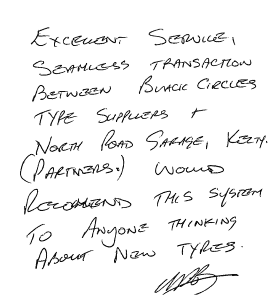 EXCELLENT SERVICE,
SEAMLESS TRANSACTION
BETWEEN BLACK CIRCLES
TYPE SUPPLIERS +
NORTH ROAD GARAGE, KELTY.
(PARTNERS.) WOULD
RECOMMEND THIS SYSTEM
TO ANYONE THINKING
ABOUT NEW TYRES.